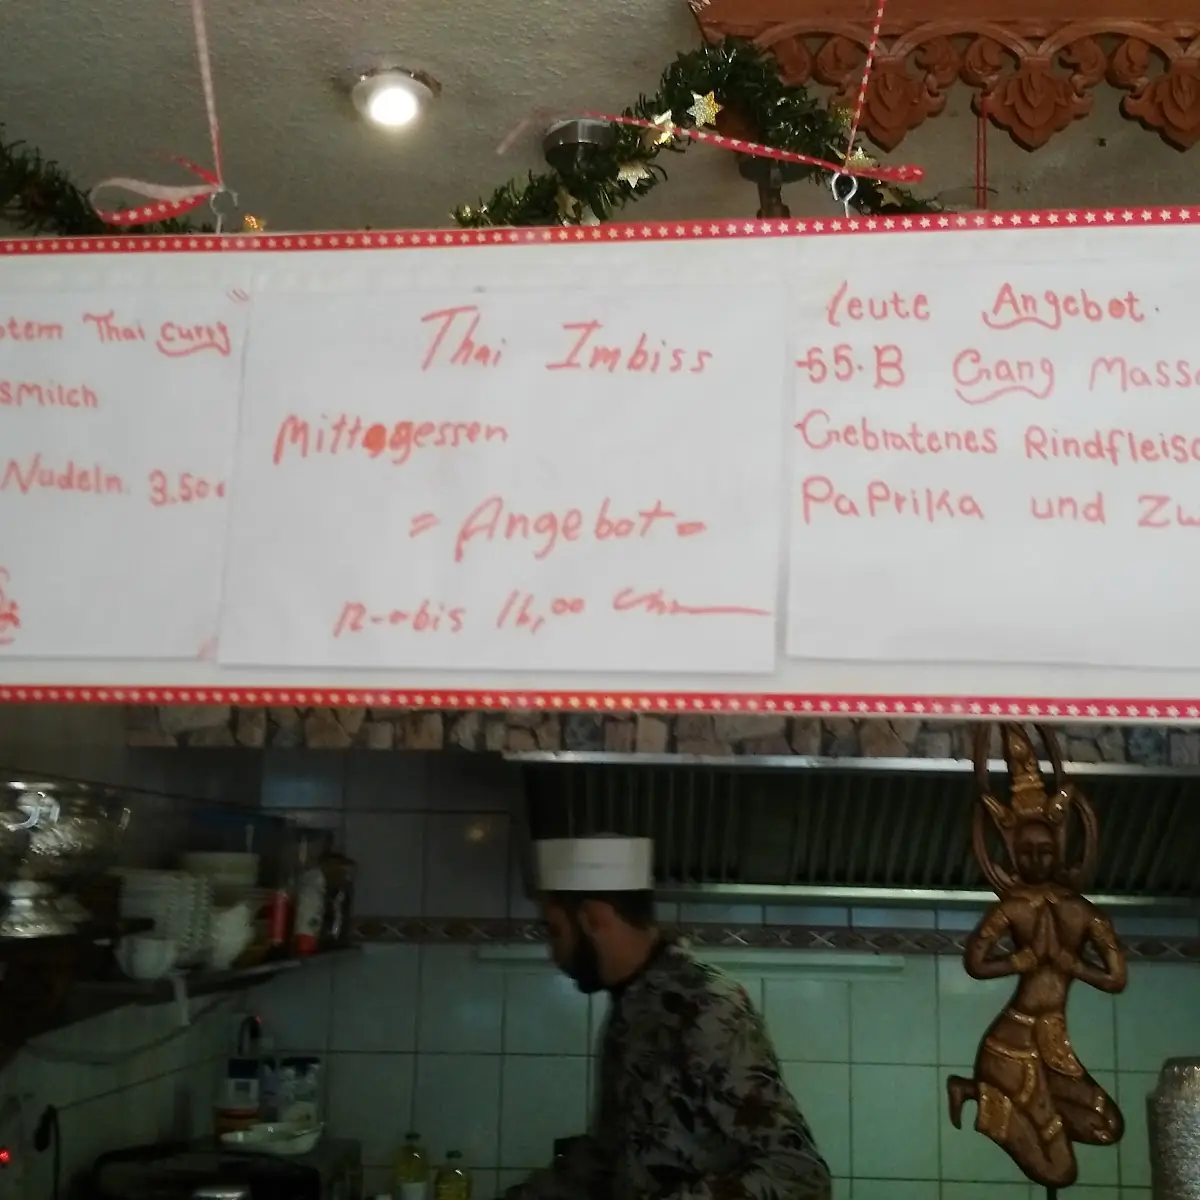 otem Thai Curry
smilch
Nudeln. 3.50
Thai Imbiss
Mittagessen
= Angebot =
12 - bis 16,00 Uhr
leute Angebot.
55.B Gang Mass
Gebratenes Rindfleis
PaPrika und Zu